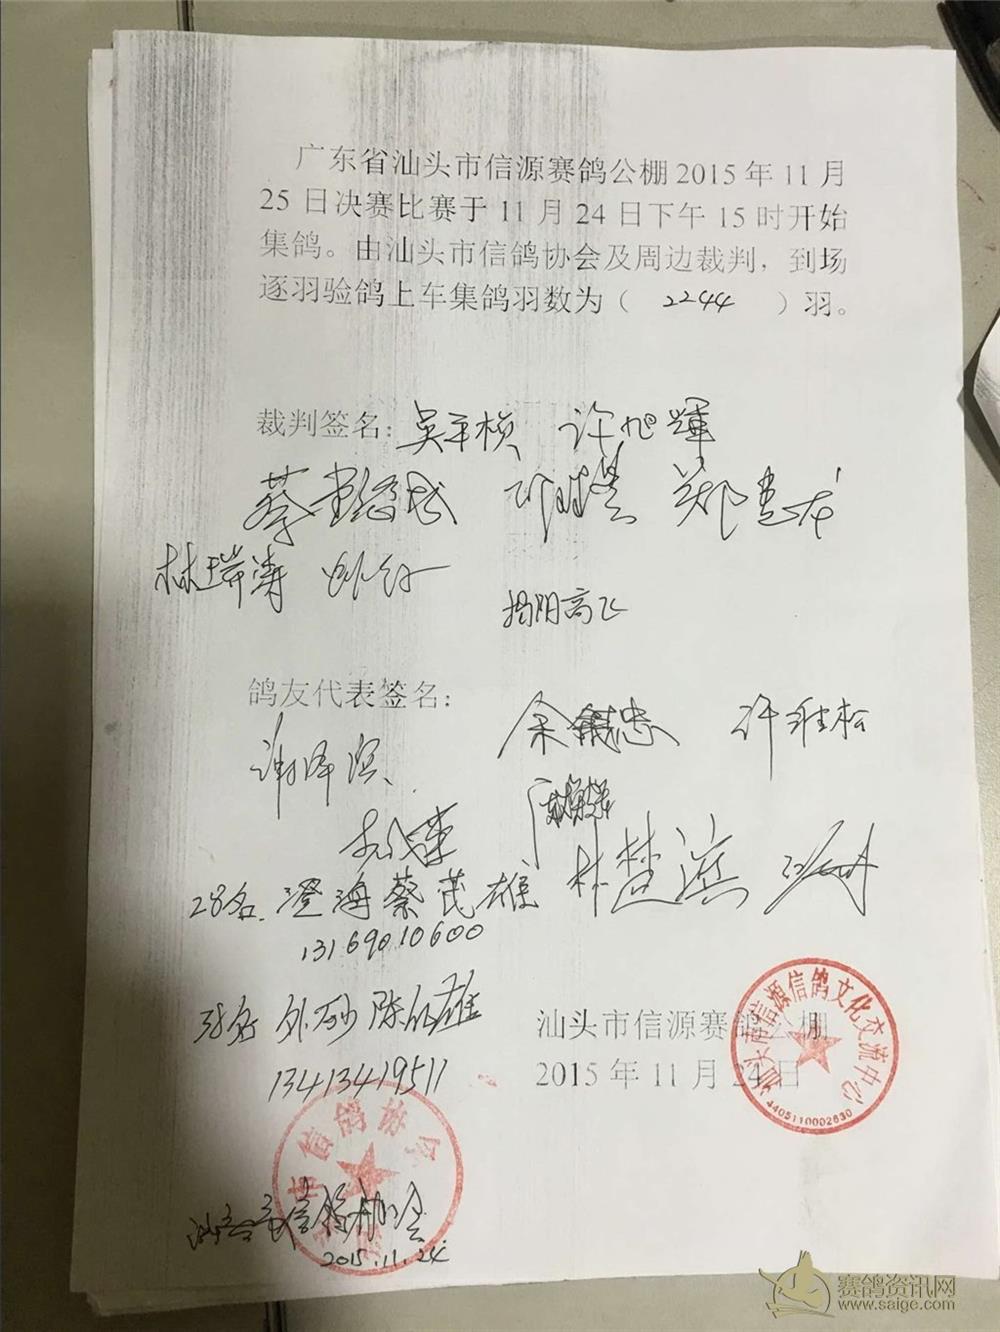 广东省汕头市信源赛鸽公棚2015年11月
25日决赛比赛于11月24日下午15时开始
集鸽。由汕头市信鸽协会及周边裁判，到场
逐羽验鸽上车集鸽羽数为（ 2244 ）羽。
裁判签名：吴平桢 许旭辉
蔡 郑
林瑞涛
揭阳高飞
鸽友代表签名：
谢泽滨 余 忠 许 松
林楚
28名 澄海蔡茂雄
13169010600
陈 雄
13413419511
汕头市信源赛鸽公棚
2015年11月24日
汕头市信源信鸽文化交流中心
4405110002630
市信鸽协会
汕头市信鸽协会
2015.11.24
赛鸽资讯网
www.saige.com